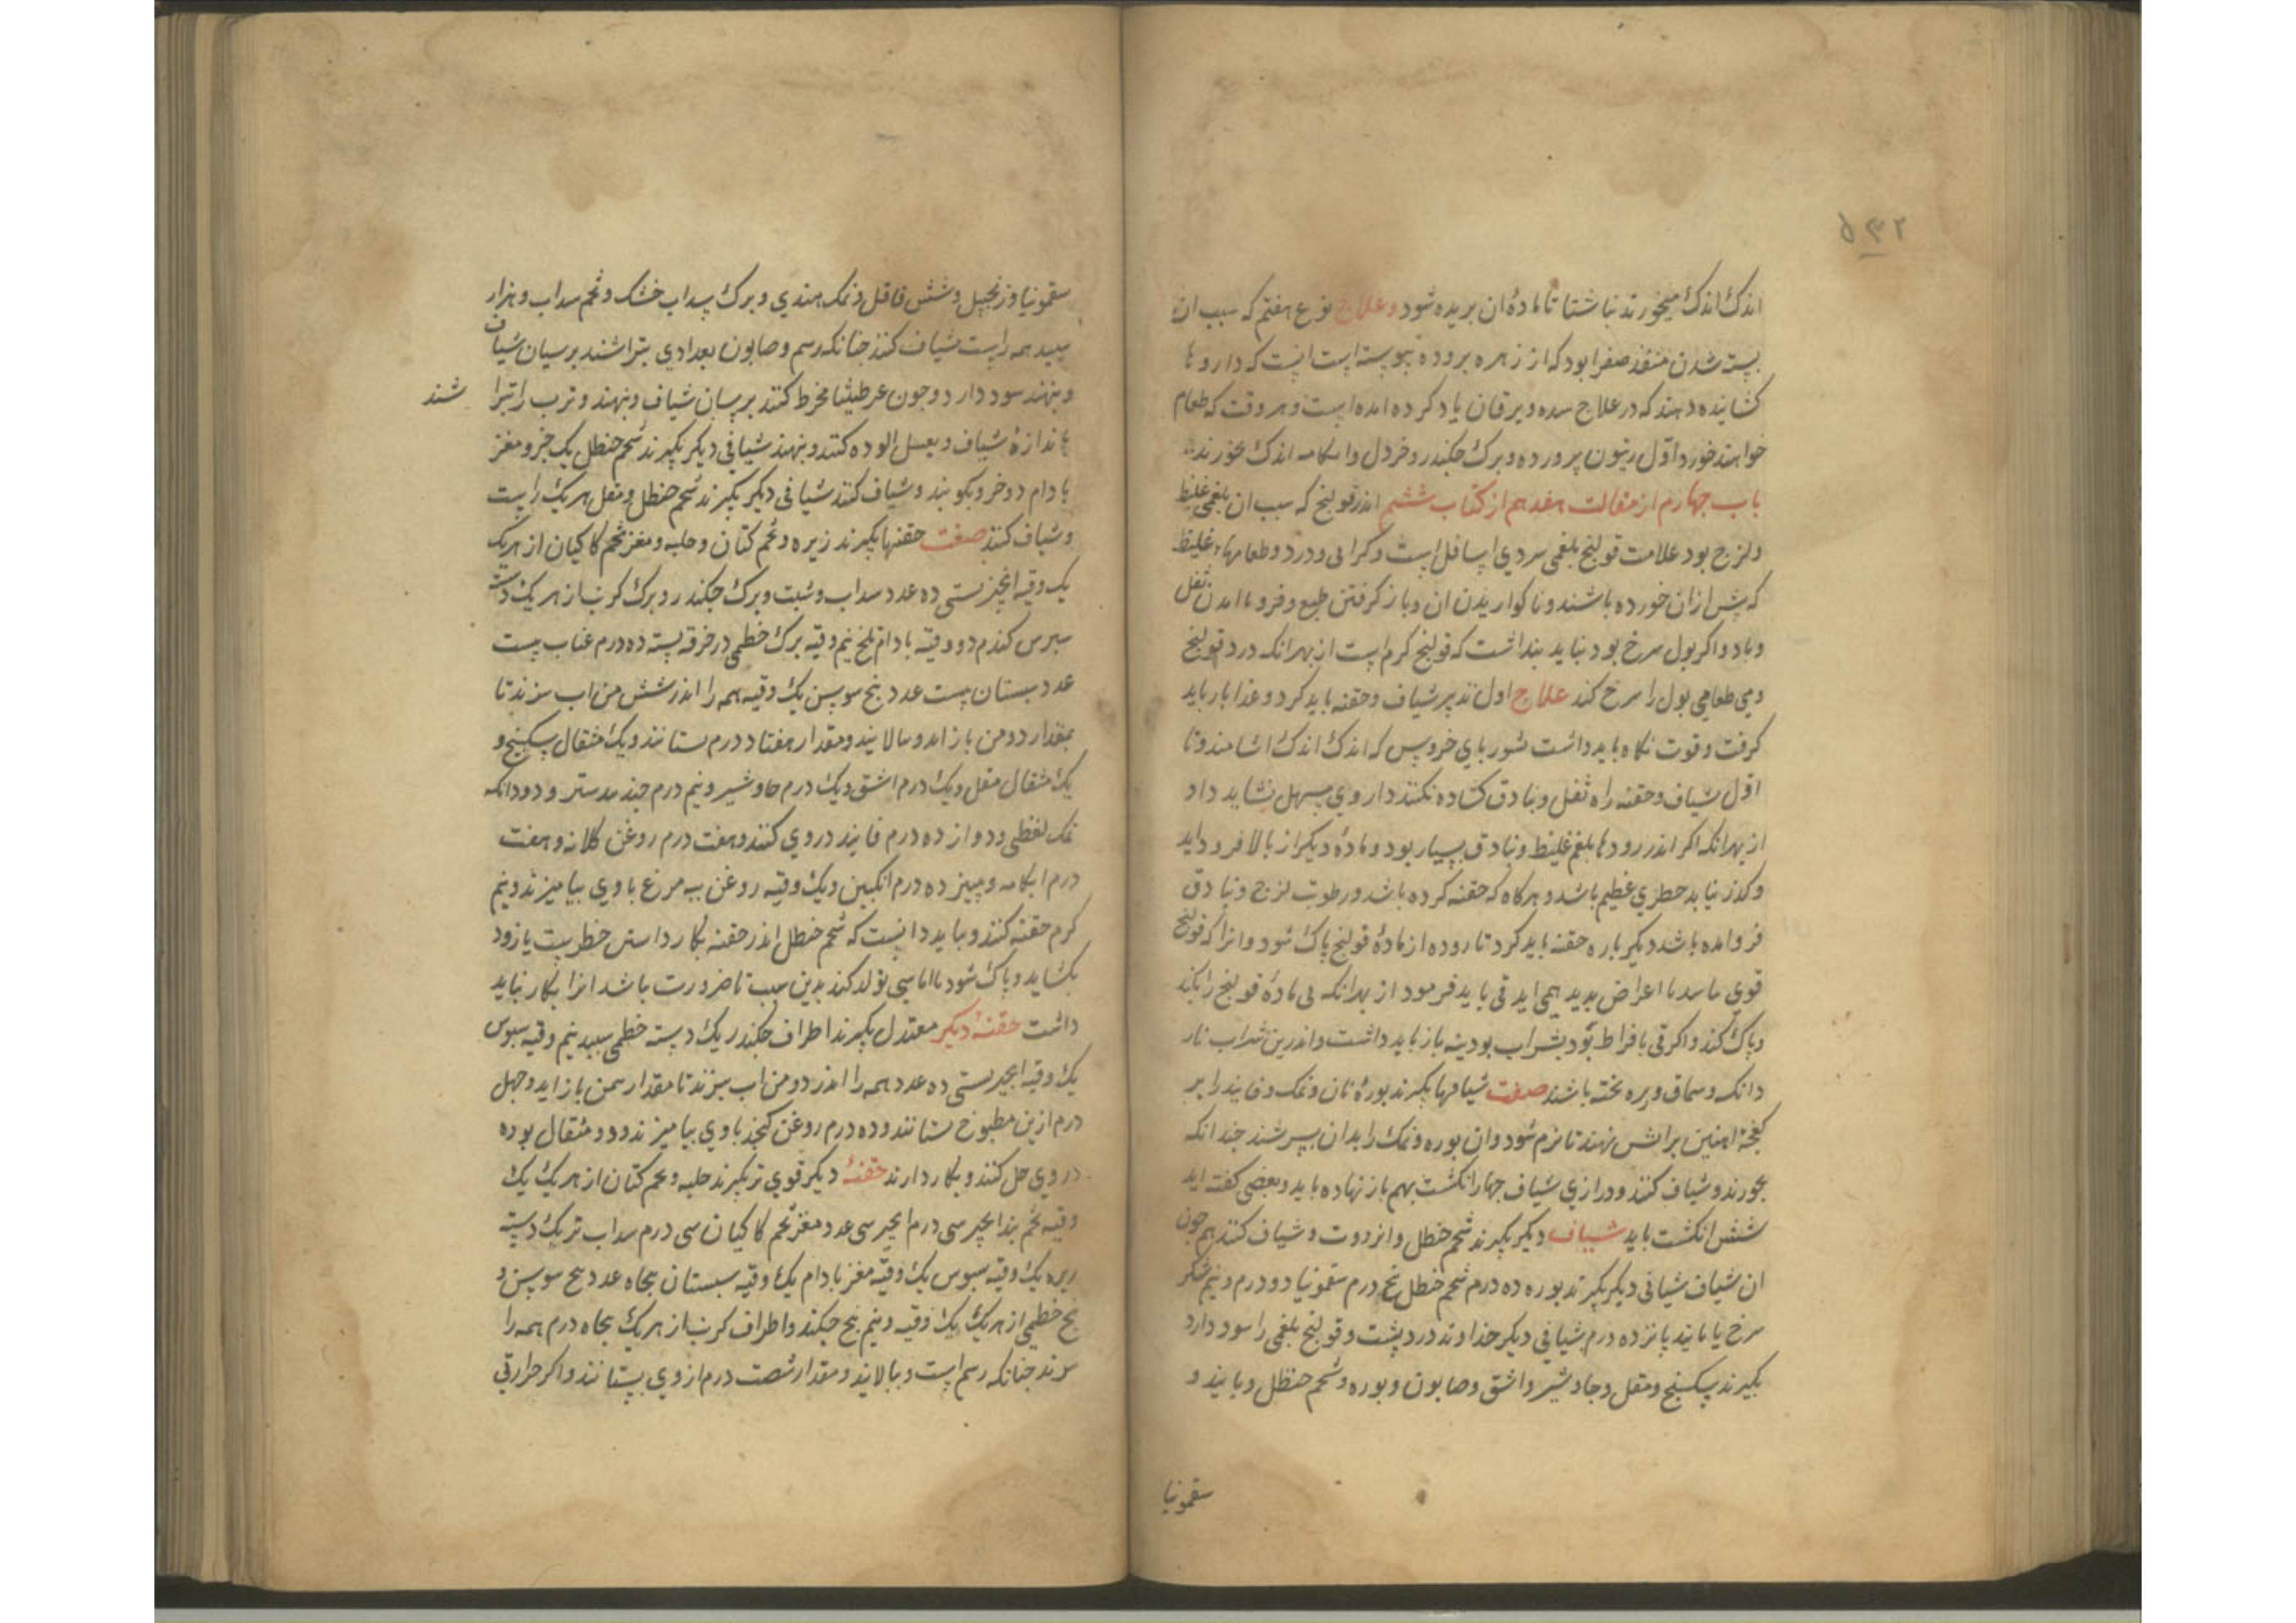 ۵۳۲
اندک اندک میخورند ناشتا تا مادۀ ان بریده شود وعلاج نوع هفتم که سبب ان
بسته شدن منفذ صفرا بود که از زهره بروده پیوسته است انست که داروها
کشاینده دهند که در علاج سده ویرقان یاد کرده امده است وهر وقت که طعام
خواهند خورد اوّل زیتون پرورده وبرک جکندر وخردل وابکامه اندک بخورند
باب جهارم از مقالت هفدهم از کتاب ششم اندر قولنج که سبب ان بلغمی غلیظ
ولزج بود علامت قولنج بلغمی سردی اسافل است وکرانی ودرد وطعامهاء غلیظ
که پیش ازان خورده باشند وناکواریدن ان وباز کرفتن طبع وفرو نا امدن ثفل
وباد واکر بول سرخ بود نباید بنداشت که قولنج کرم است از بهر انکه درد قولنج
وبی طعامی بول را سرخ کند علاج اول تدبیر شیاف وحقنه باید کرد وغذا باز باید
کرفت وقوت نکاه باید داشت بشوربای خروس که اندک اندک اشامند وتا
اوّل شیاف وحقنه راه ثفل وبنادق کشاده نکنند داروی مسهل نشاید داد
از بهر انکه اکر اندر رودها بلغم غلیظ وبنادق بسیار بود ومادۀ دیکر از بالا فرود اید
وکذر نیابد خطری عظیم باشد وهرکاه که حقنه کرده باشد ورطوبت لزج وبنادق
فرو امده باشد دیکر باره حقنه باید کرد تا روده از مادۀ قولنج پاک شود وانرا که قولنج
قوی باشد با اعراض بدید همی اید قی باید فرمود از بهر انکه قی مادۀ قولنج را بکند
وپاک کند واکر قی بافراط بود بشراب بودینه باز باید داشت واندرین شراب نار
دانک وسماق وبره بخته باشند صفت شیافها بکیرند بورۀ نان ونمک وفانیذ را بر
کفجۀ اهنین بر اتش نهند تا نرم شود وان بوره ونمک را بدان بسرشند جندانکه
بخورند وشیاف کنند ودرازی شیاف جهار انکشت بهم باز نهاده باید وبعضی کفته اند
شش انکشت باید شیاف دیکر بکیرند شحم حنظل وانزروت وشیاف کنند هم جون
ان شیاف شیافی دیکر بکیرند بوره ده درم شحم حنظل پنج درم سقمونیا دو درم ونیم شکر
سرخ یا فانیذ پانزده درم شیافی دیکر خداوند درد پشت وقولنج بلغمی را سود دارد
بکیرند سکبینج ومقل وجاوشیر واشق وصابون وبوره وشحم حنظل وفانیذ و
سقمونیا
سقمونیا وزنجبیل وشش فلفل ونمک هندی وبرک سداب خشک وتخم سداب وهزار
سبید همه راست شیاف کنند جنانکه رسم وصابون بغدادی بتراشند برسان شیاف
وبنهند سود دارد وجون عرطنیثا مخرط کنند برسان شیاف وبنهند وترب را بترا شند
باندازۀ شیاف وبعسل الوده کنند وبنهند شیافی دیکر بکیرند شحم حنظل یک جزو ومغز
بادام دو جزو بکوبند وشیاف کنند شیافی دیکر بکیرند شحم حنظل ومقل هریک راست
وشیاف کنند صفت حقنها بکیرند زیره وتخم کتان وحلبه ومغز تخم کاکیان از هریک
یک وقیه انجیر بستی ده عدد سداب وشبت وبرک جکندر وبرک کرنب از هریک دسته
سبوس کندم دو وقیه بادام تلخ نیم وقیه برک خطمی در خرقه بسته ده درم عناب بیست
عدد سبستان بیست عدد بیخ سوسن یک وقیه همه را اندر شش من اب بپزند تا
بمقدار دو من باز اید وبپالایند ومقدار هفتاد درم بستانند ویک مثقال سکبینج و
یک مثقال مقل ویک درم اشق ویک درم جاوشیر ونیم درم جندبیدستر ودو دانکه
نمک نفطی ودوازده درم فانیذ در وی کنند وهفت درم روغن کلانه وهفت
درم ابکامه وبنیز ده درم انکبین ویک وقیه روغن بید مرغ باوی بیامیزند ونیم
کرم حقنه کنند وبباید دانست که شحم حنظل اندر حقنه بکار داشتن خطریست یا زود
بکشاید وپاک شود یا اماسی تولد کند بدین سبب تا ضرورت باشد انرا بکار نباید
داشت حقنۀ دیکر معتدل بکیرند اطراف جکندر یک دسته خطمی سبید نیم وقیه سبوس
یک وقیه انجیر بستی ده عدد همه را اندر دو من اب بپزند تا مقدار نیم من باز اید وجهل
درم ازین مطبوخ بستانند وده درم روغن کنجد باوی بیامیزند ودو مثقال بوره
در وی حل کنند وبکار دارند حقنۀ دیکر قوی تر بکیرند حلبه وتخم کتان از هریک یک
وقیه تخم بیدانجیر سی درم انجیر سی عدد مغز تخم کاکیان سی درم سداب تر یک دسته
زیره یک وقیه سبوس یک وقیه مغز بادام یک وقیه سبستان بنجاه عدد بیخ سوسن و
بیخ خطمی از هریک یک وقیه ونیم بیخ جکندر واطراف کرنب از هریک بنجاه درم همه را
بپزند جنانکه رسم است وبپالایند ومقدار شصت درم از وی بستانند واکر حرارتی